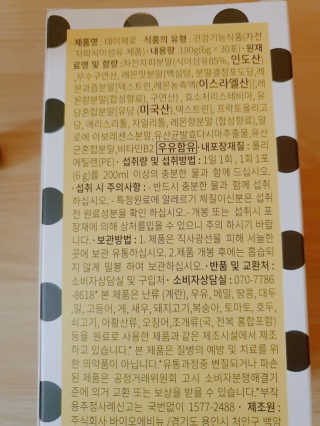 제품명 : 데이제로 · 식품의 유형 : 건강기능식품(차전
차피식이섬유 제품) · 내용량 180g(6g × 30포) · 원재
료명 및 함량 : 차전자피분말(식이섬유85%, 인도산)
, 우수구연산, 레몬맛분말[백설탕, 분말결정포도당, 레
몬과즙분말[덱스트린, 레몬농축액(이스라엘산)], 레
몬향분말(합성향료), 구연산], 효소처리스테비아, 유
당혼합분말[유당(미국산), 덱스트린], 프락토올리고
당, 에리스톨, 자일리톨, 레몬향분말(합성향료), 알
로에 아보레센스분말, 유산균발효다시마추출물, 유산
균혼합분말, 비타민B2 우유함유 · 내포장재질 : 폴리
에틸렌(PE) · 섭취량 및 섭취방법 : 1일 1회, 1회 1포
(6g)를 200ml 이상의 충분한 물과 함께 드십시오.
· 섭취 시 주의사항 : · 반드시 충분한 물과 함께 섭취
하십시오. · 특정원료에 알레르기 체질이신분은 섭취
전 원료성분을 확인 하십시오. · 개봉 또는 섭취시 포
장재에 의해 상처를입을 수 있으니 주의 하시기 바랍
니다. · 보관방법 : 1. 제품은 직사광선을 피해 서늘한
곳에 보관 유통하십시오. 2. 제품 개봉 후에는 흡습되
지 않게 밀봉 하여 보관하십시오. · 반품 및 교환처 :
소비자상담실 및 구입처 · 소비자상담실 : 070-7786
-8618* 본 제품은 난류 (계란), 우유, 메밀, 땅콩, 대두
, 밀, 고등어, 게, 새우, 돼지고기, 복숭아, 토마토, 호두,
쇠고기, 아황산류, 오징어, 조개류(굴, 전복 홍합포함)
등을 원료로 사용한 제품과 같은 제조시설에서 제조
하고 있습니다.* 본 제품은 질병의 예방 및 치료를 위
한 의약품이 아닙니다.*유통과정중 변질되거나 파손
된 제품은 공정거래위원회 고시 소비자분쟁해결기
준에 의거 교환 또는 보상을 받을 수 있습니다.*부작
용추정사례신고는 국번없이 1577-2488 · 제조원 :
주식회사 바이오에비뉴 /경기도 용인시 처인구 백암